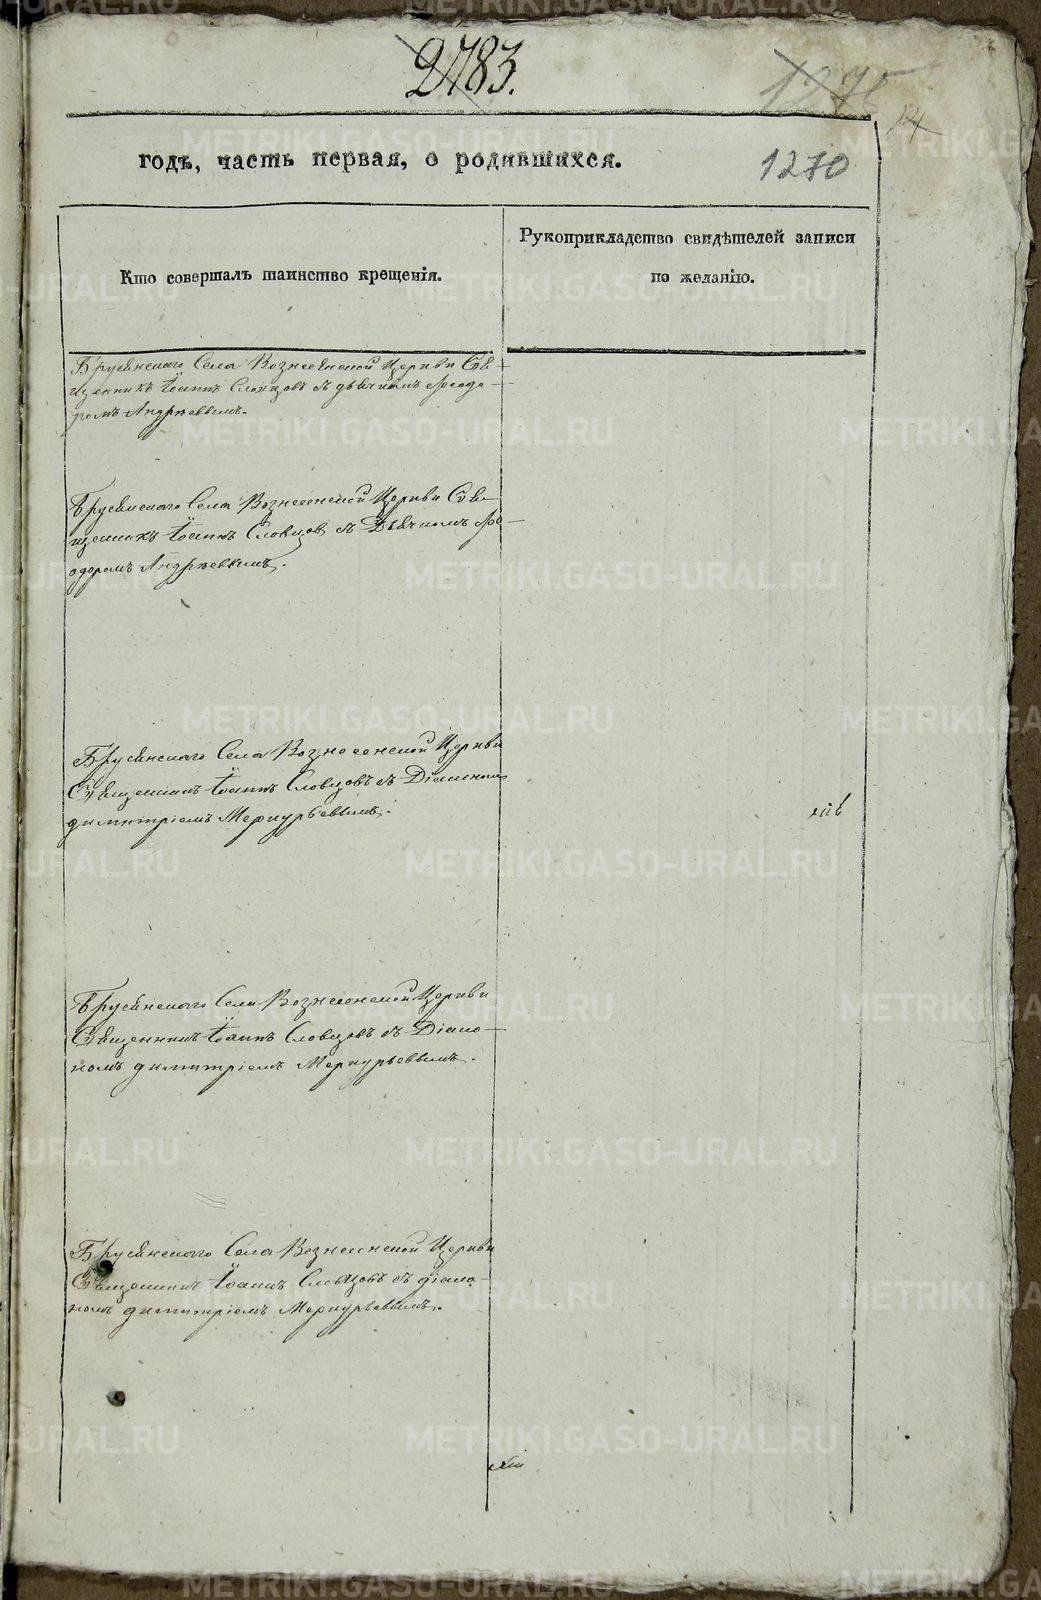 2783.
1275
14
годъ, часть первая, о родившихся.
1270
Кто совершалъ таинство крещенія.
Рукоприкладство свидѣтелей записи
по желанію.
Брусянскаго Села Вознесенской Церкви Свя-
щенникъ Іоаннъ Словцовъ съ дьячкомъ Ѳеодо-
ромъ Андреевымъ.
Брусянскаго Села Вознесенской Церкви Свя-
щенникъ Іоаннъ Словцов съ Дьячкомъ Ѳе-
одоромъ Андреевымъ.
Брусянскаго Села Вознесенской Церкви
Священникъ Іоаннъ Словцовъ съ Діакономъ
Димитріемъ Меркурьевымъ.
Брусянскаго Села Вознесенской Церкви
Священникъ Іоаннъ Словцовъ съ Діако-
номъ Димитріемъ Меркурьевымъ.
Брусянскаго Села Вознесенской Церкви
Священникъ Іоаннъ Словцовъ съ діако-
номъ Димитріемъ Меркурьевымъ.
METRIKI.GASO-URAL.RU